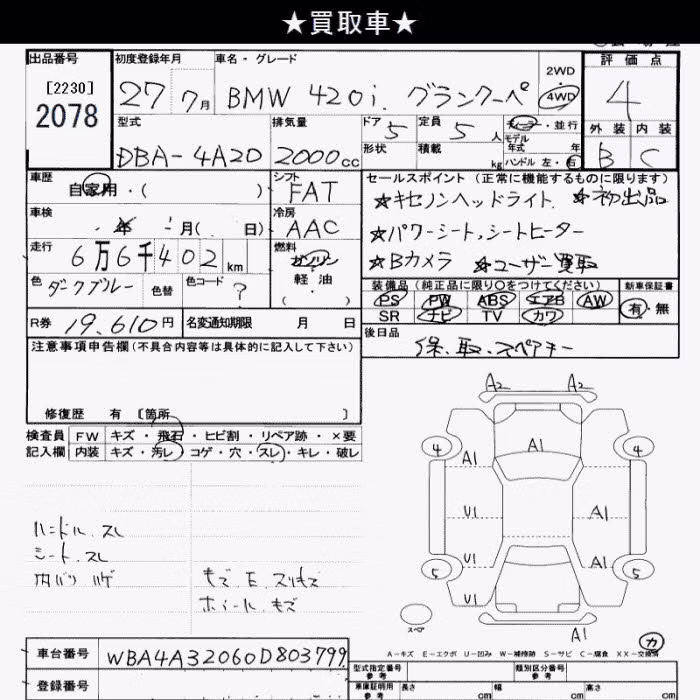 ★買取車★
出品番号
[2230]
2078
初度登録年月
27 7月
車名・グレード
BMW 420i. グランクーペ
2WD
・
4WD
評価点
4
外装 内装
B C
型式
DBA-4A20
排気量
2000cc
ドア 5
定員 5 人
形状
積載 kg
ディーラー・並行
モデル年式 年
ハンドル 左・右
車歴
自家用・( )
シフト
FAT
車検
年 月( 日)
冷房
AAC
走行
6万6千402km
燃料
ガソリン
軽油
( )
色
ダークブルー
色替
色コード
?
R券 19,610円
名変通知期限 月 日
セールスポイント (正常に機能するものに限ります)
★キセノンヘッドライト. ★初出品
★パワーシート,シートヒーター
★Bカメラ ★ユーザー買取
装備品 (純正品に限り○をつけてください)
PS PW ABS エアB AW
SR ナビ TV カワ
新車保証書
有・無
後日品
保.取.スペアキー
注意事項申告欄(不具合内容等は具体的に記入して下さい)
修復歴 有 [箇所 ]
検査員
記入欄
FW キズ・飛石・ヒビ割・リペア跡・×要
内装 キズ・汚レ・コゲ・穴・スレ・キレ・破レ
ハンドル.スレ
シート.スレ
内バリ ハゲ
キズ.E.スリキズ
ホイール.キズ
A2 A2
4 A1 4
A1
U1 A1
U1 A1
5 5
U1
スペア
A1
カ
A-キズ E-エクボ U-凹み W-補修跡 S-サビ C-腐食 XX-交換済
車台番号
WBA4A32060D803799
登録番号
型式指定番号
参考
類別区分番号
参考
車庫証明用
参考
長さ cm 幅 cm 高さ cm